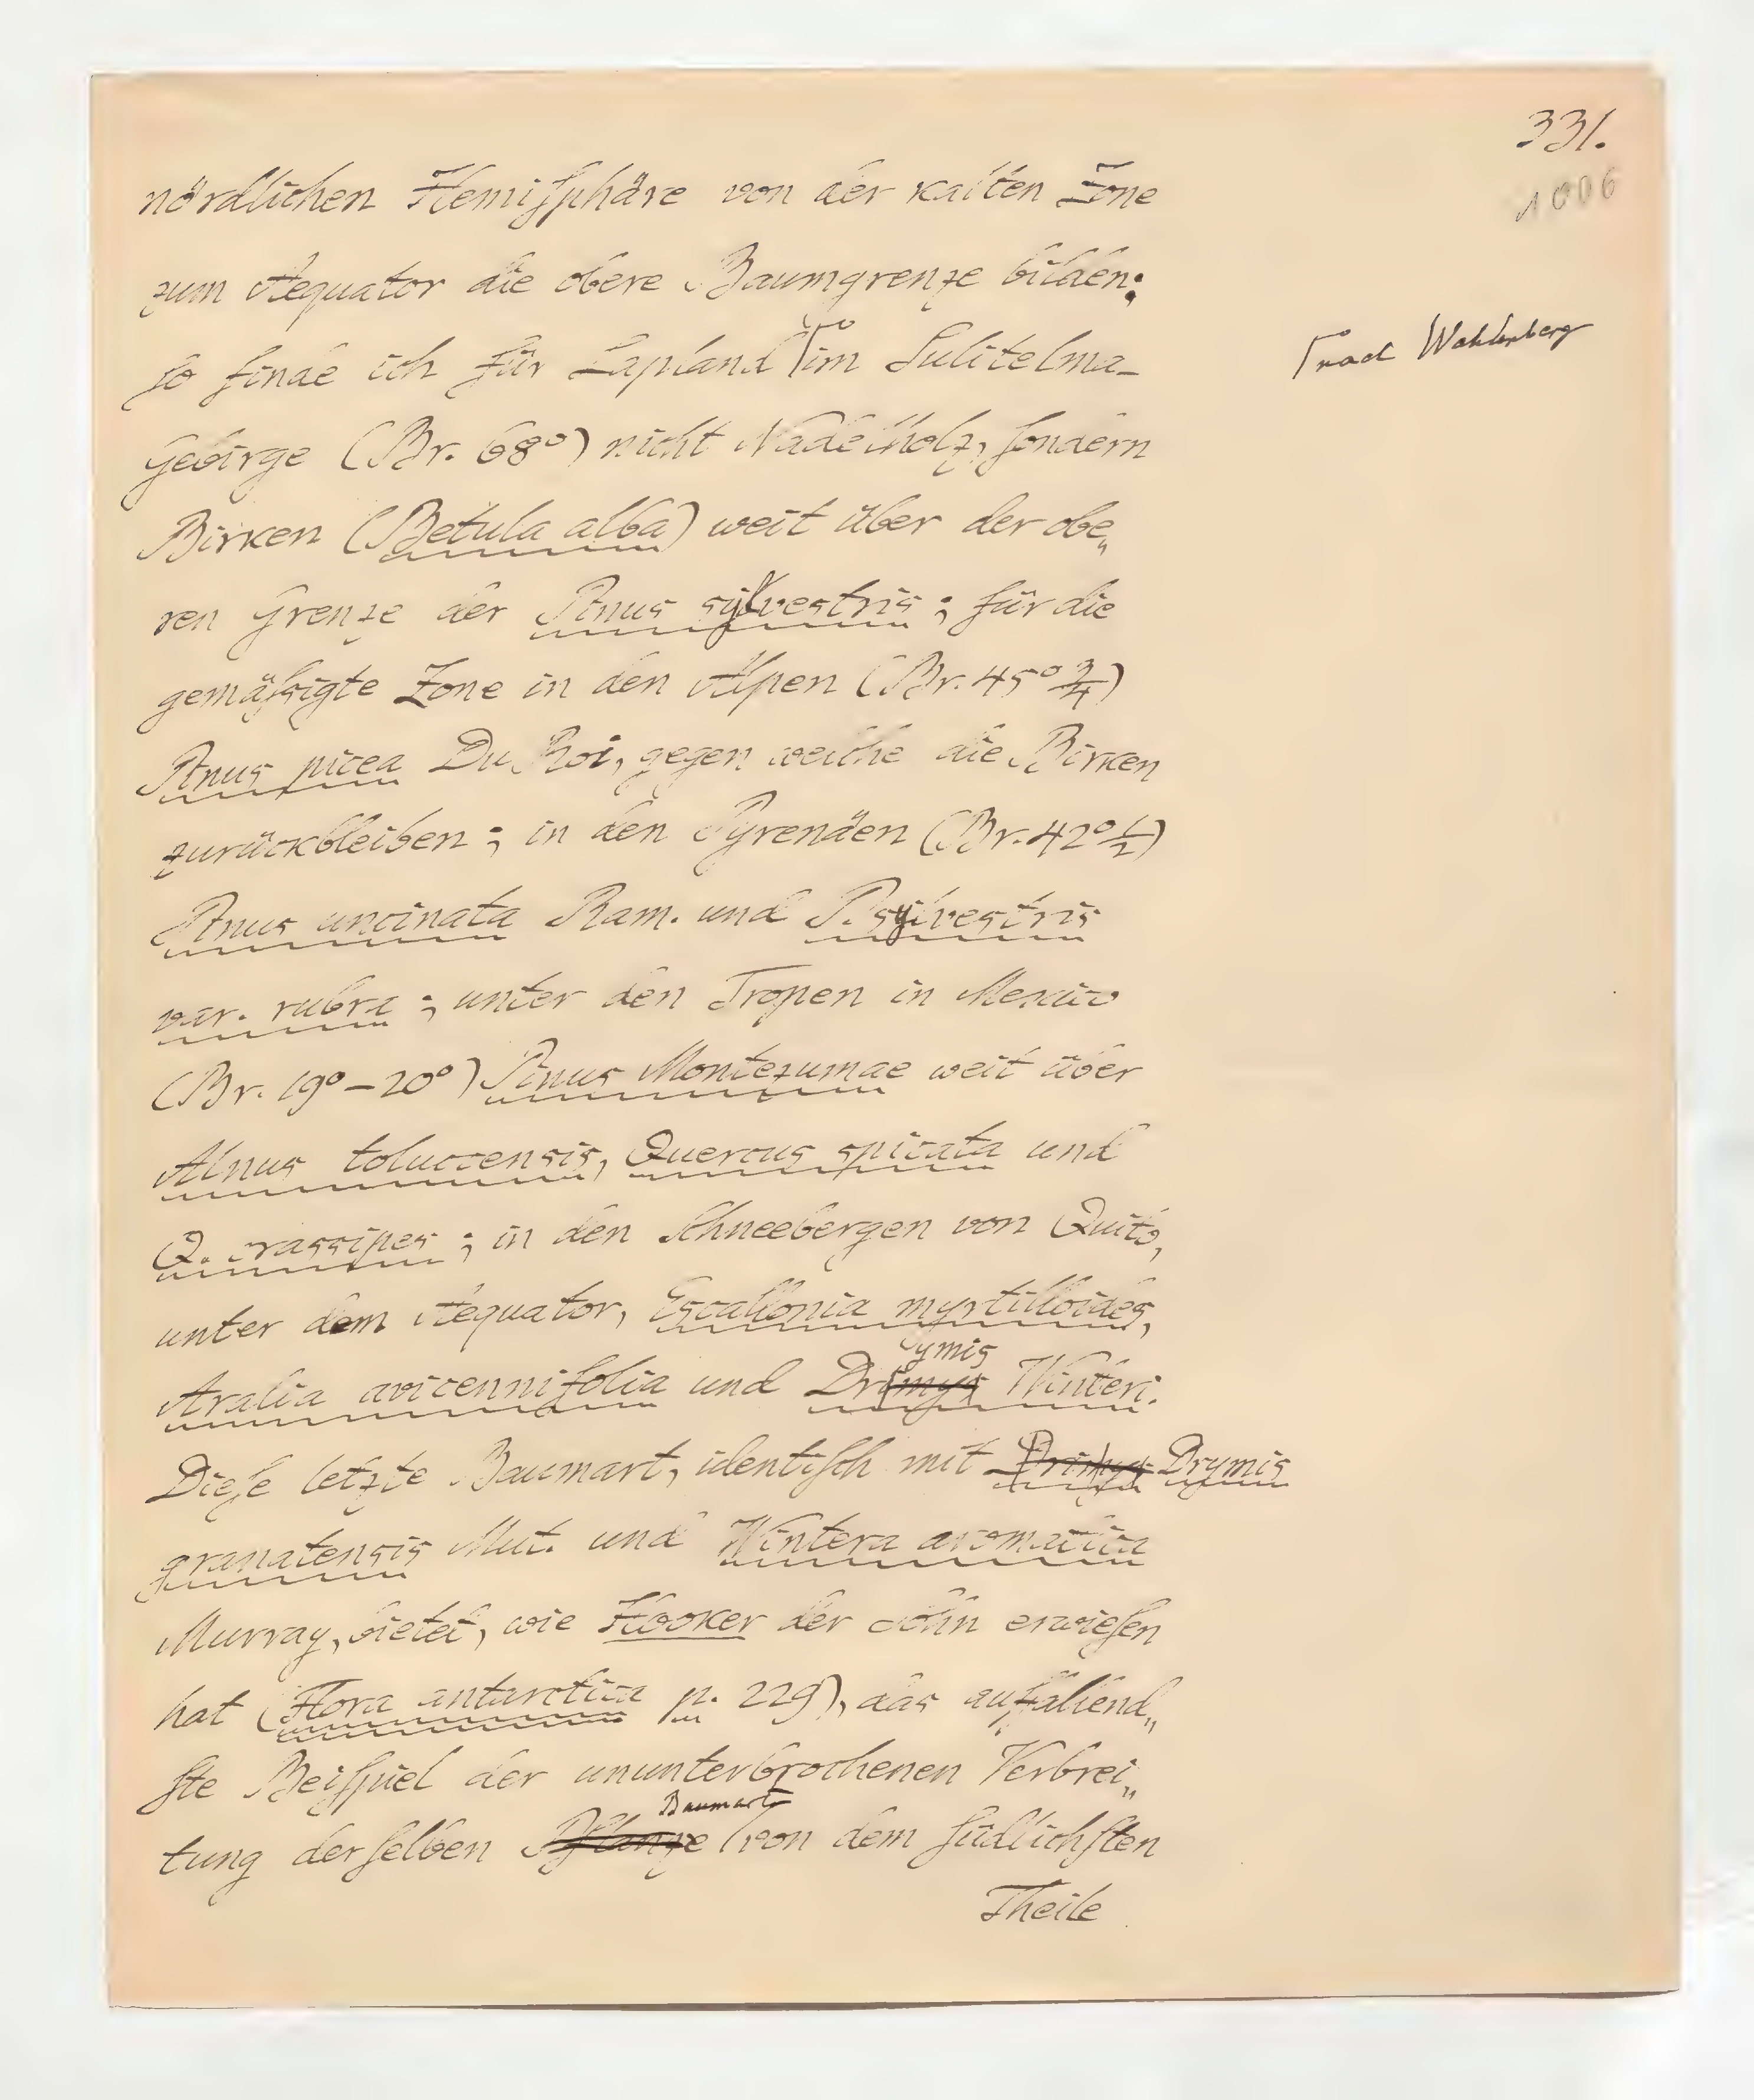 331.
1006
nördlichen Hemisphäre von der kalten Zone
zum Aequator die obere Baumgrenze bilden;
so finde ich für Lapland im Sulitelma-
Γnach Wahlenberg
Gebirge (Br. 68°) nicht Nadelholz, sondern
Birken (Betula alba) weit über der obe„
ren Grenze der Pinus sylvestris; für die
gemäßigte Zone in den Alpen (Br. 45° 3/4)
Pinus picea Du Roi, gegen welche die Birken
zurückbleiben; in den Pyrenäen (Br. 42° 1/2)
Pinus uncinata Ram. und P. sylvestris
var. rubra; unter den Tropen in Mexico
(Br. 19°–20°) Pinus Montezumae weit über
Alnus toluccensis, Quercus spicata und
Q. crassipes; in den Schneebergen von Quito,
unter dem Aequator, Escallonia myrtilloides,
ymis
Aralia avicennifolia und Drimys Winteri.
Diese letzte Baumart, identisch mit Drimys Drymis
granatensis Mut. und Wintera aromatica
Murray, bietet, wie Hooker der Sohn erwiesen
hat (Flora antarctica p. 229), das auffallend„
ste Beispiel der ununterbrochenen Verbrei„
Baumart
tung derselben Pflanze von dem südlichsten
Theile